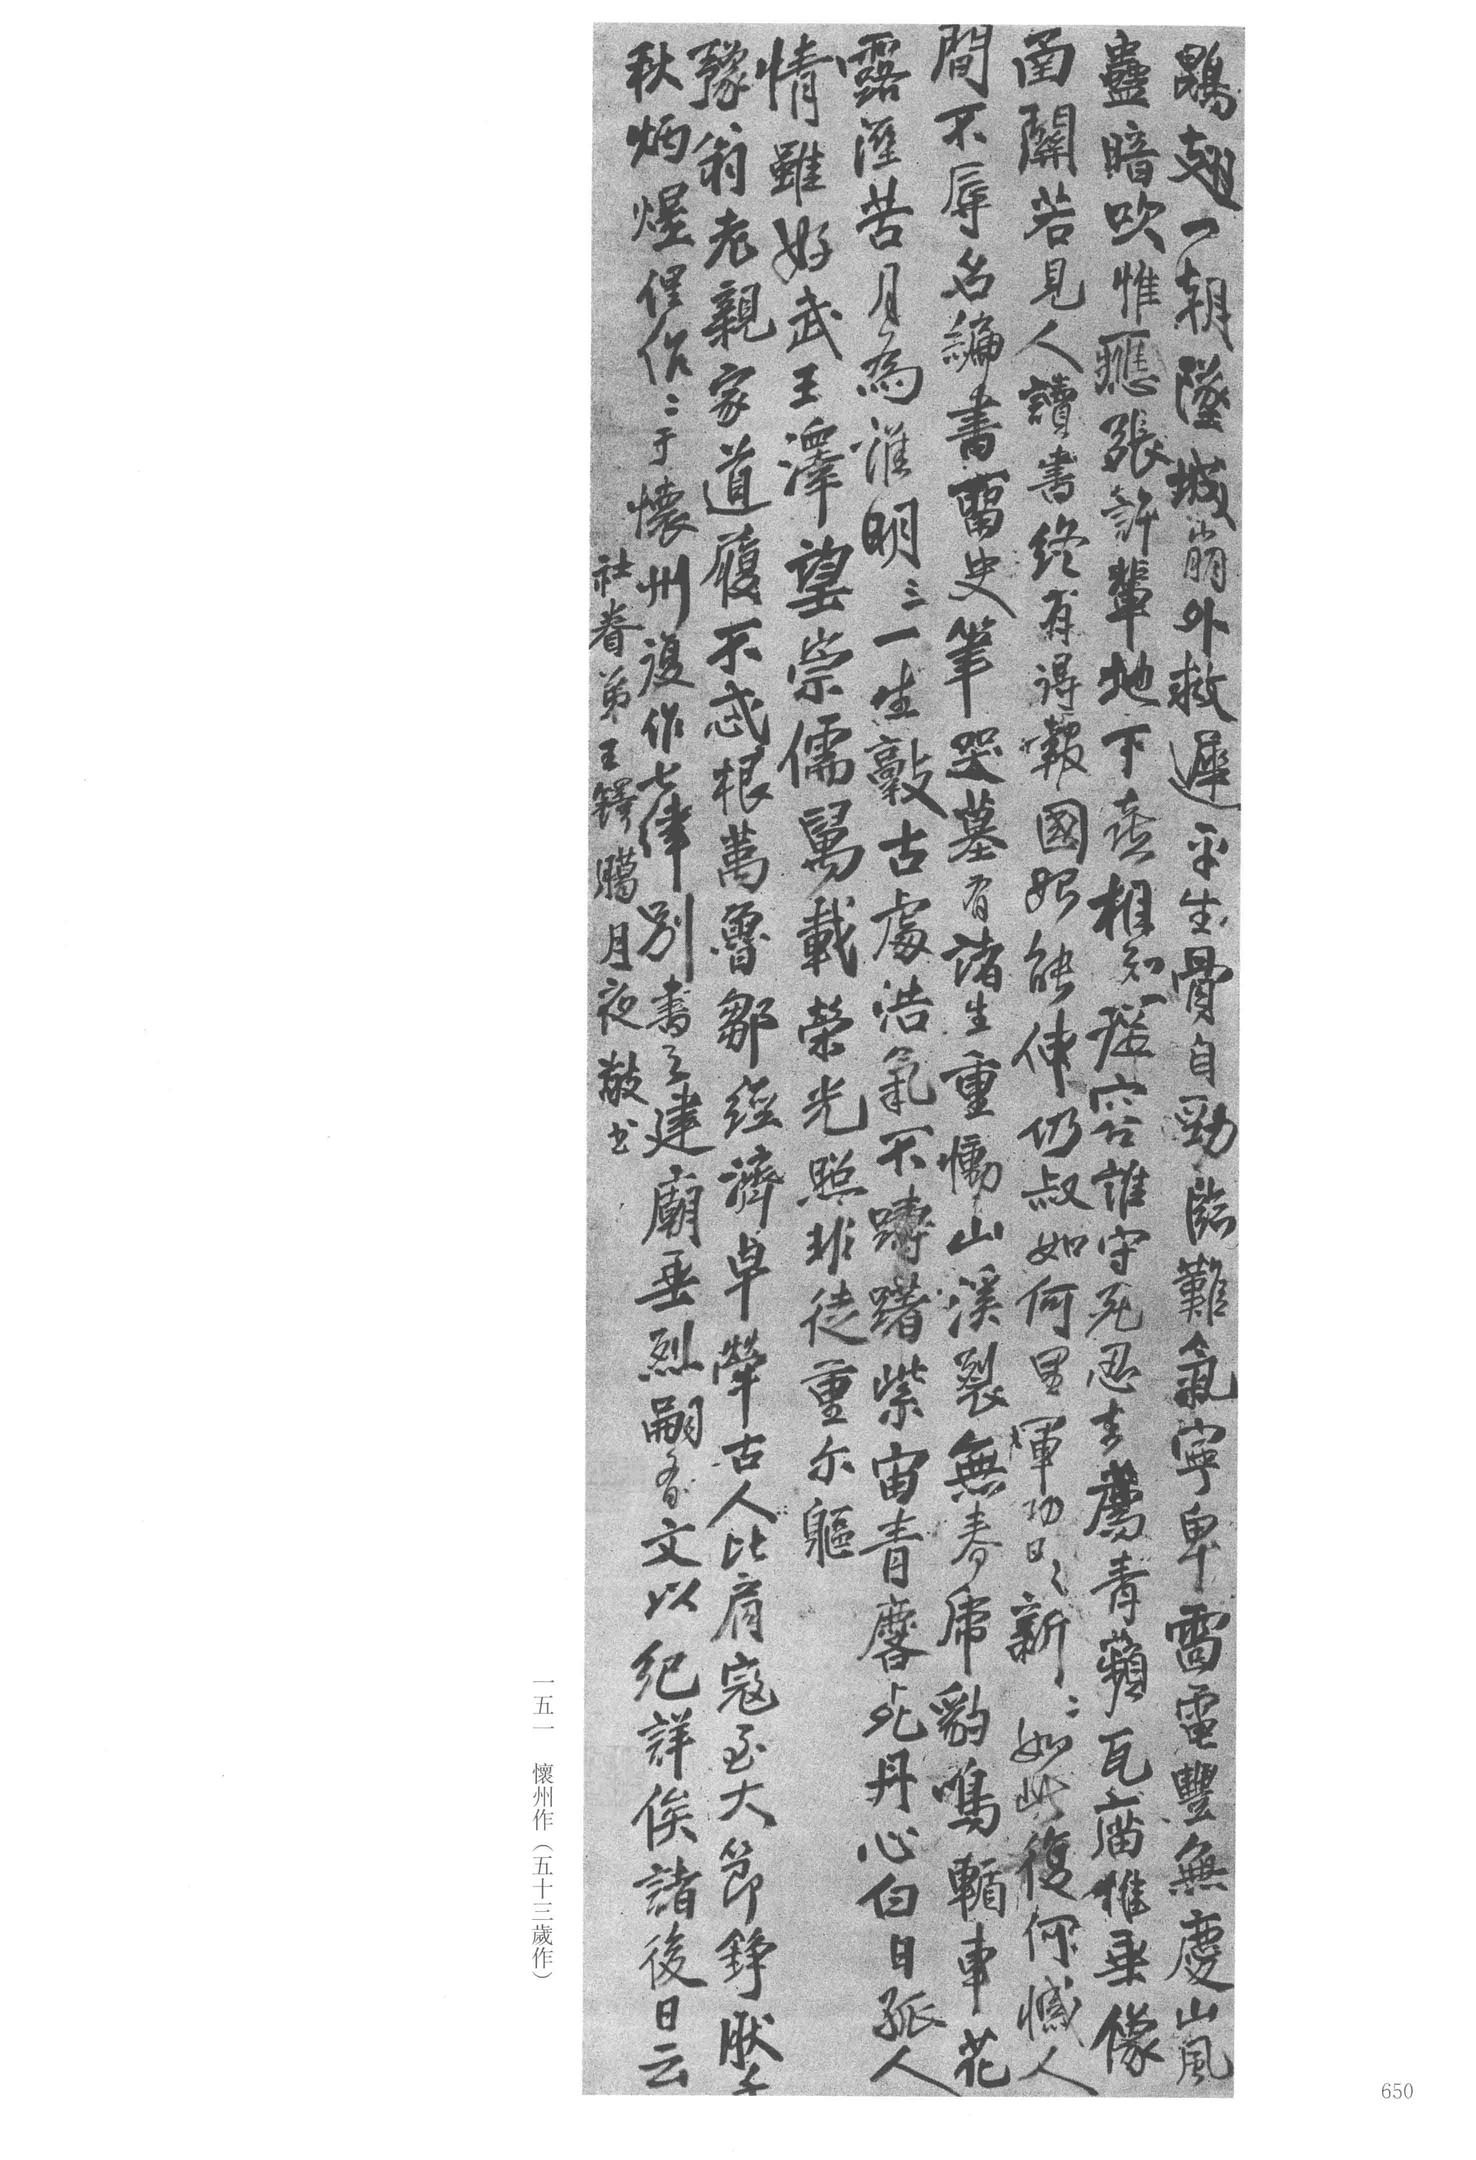 鶡翅一朝墜城崩外救遲平生骨自勁臨難氣寧卑雷電豐無慶山風
蠱暗吹惟應張許輩地下喜相知一從容誰守死忍去薦青蘋瓦廟惟垂像
函關若見人讀書終有得報國始能伸仍叔如何里軍功日日新新如此復何憾人
間不辱名編書留史筆哭墓有諸生重慟山溪裂無春虎豹鳴輴車花
露溼苦月為誰明明一生敦古處浩氣不躊躇紫宙青麐死丹心白日孤人
情雖好武王澤望崇儒舄載榮光照非徒重尔軀
豫翁老親家道履不忒根萬魯鄒經濟卓犖古人比肩寇至大節錚厭千
秋炳煋侄佋佋于懷州復作七律別書之建廟垂烈嗣有文以紀詳俟諸後日云
社眷弟王鐸臈月夜敬书
一五一 懷州作（五十三歲作）
650